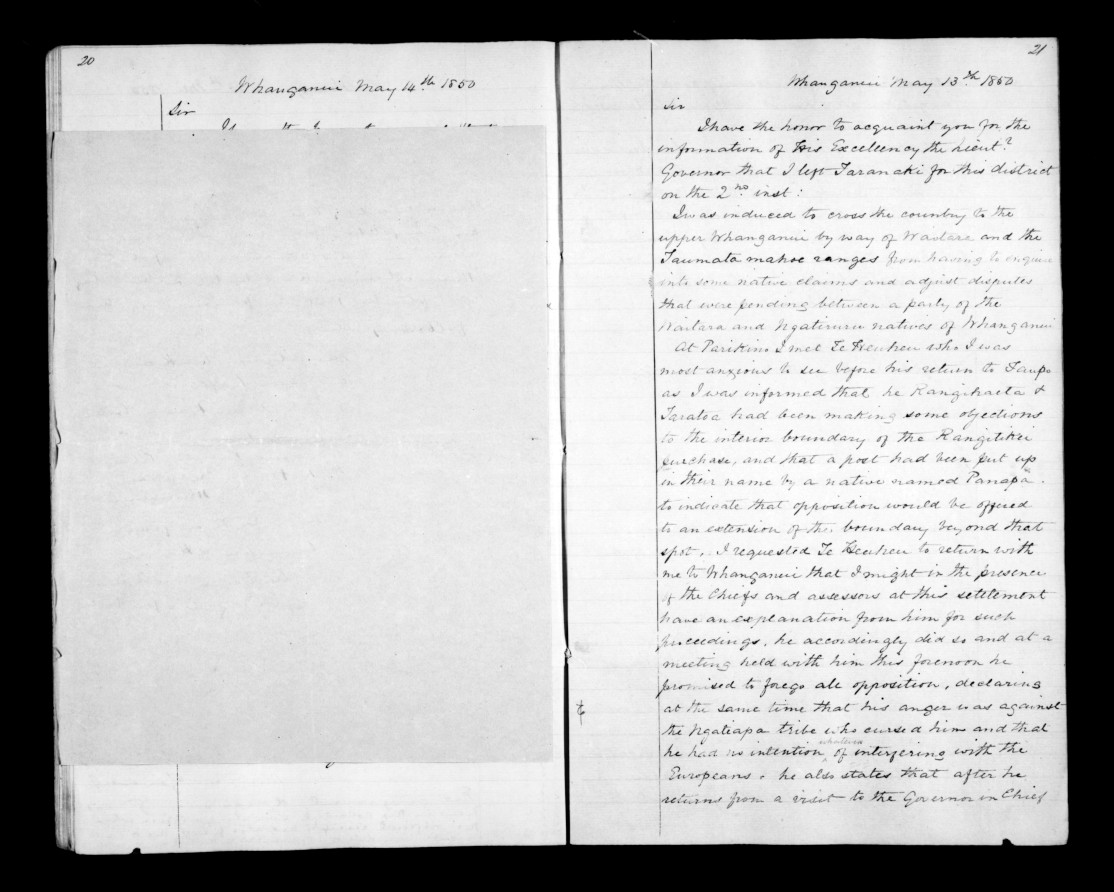 20
Whanganui May 14th 1850
Sir
21
Whanganui May 13th 1850
Sir
I have the honor to acquaint you for the
information of His Excellency the Lieut?
Governor that I left Taranaki for this district
on the 2nd inst:
I was induced to cross the country to the
upper Whanganui by way of Waitara and the
Taumata mahoe ranges from having to enquire
into some native claims and adjust disputes
that were pending between a party of the
Waitara and Ngatiruru natives of Whanganui
At Parikino I met Te Heuheu who I was
most anxious to see before his return to Taupo
as I was informed that he Rangihaeta &
Taratoa had been making some objections
to the interior boundary of the Rangitikei
purchase, and that a post had been put up
in their name by a native named Panapa.
to indicate that opposition would be offered
to an extension of the boundary beyond that
spot. I requested Te Heuheu to return with
me to Whanganui that I might in the presence
of the Chiefs and assessors at this settlement
have an explanation from him for such
proceedings. he accordingly did so and at a
meeting held with him this forenoon he
promised to forego all opposition, declaring
at the same time that his anger was against
the Ngatiapa tribe who cursed him and that
he had no intention whatever of interfering with the
Europeans. he also states that after he
returns from a visit to the Governor in Chief